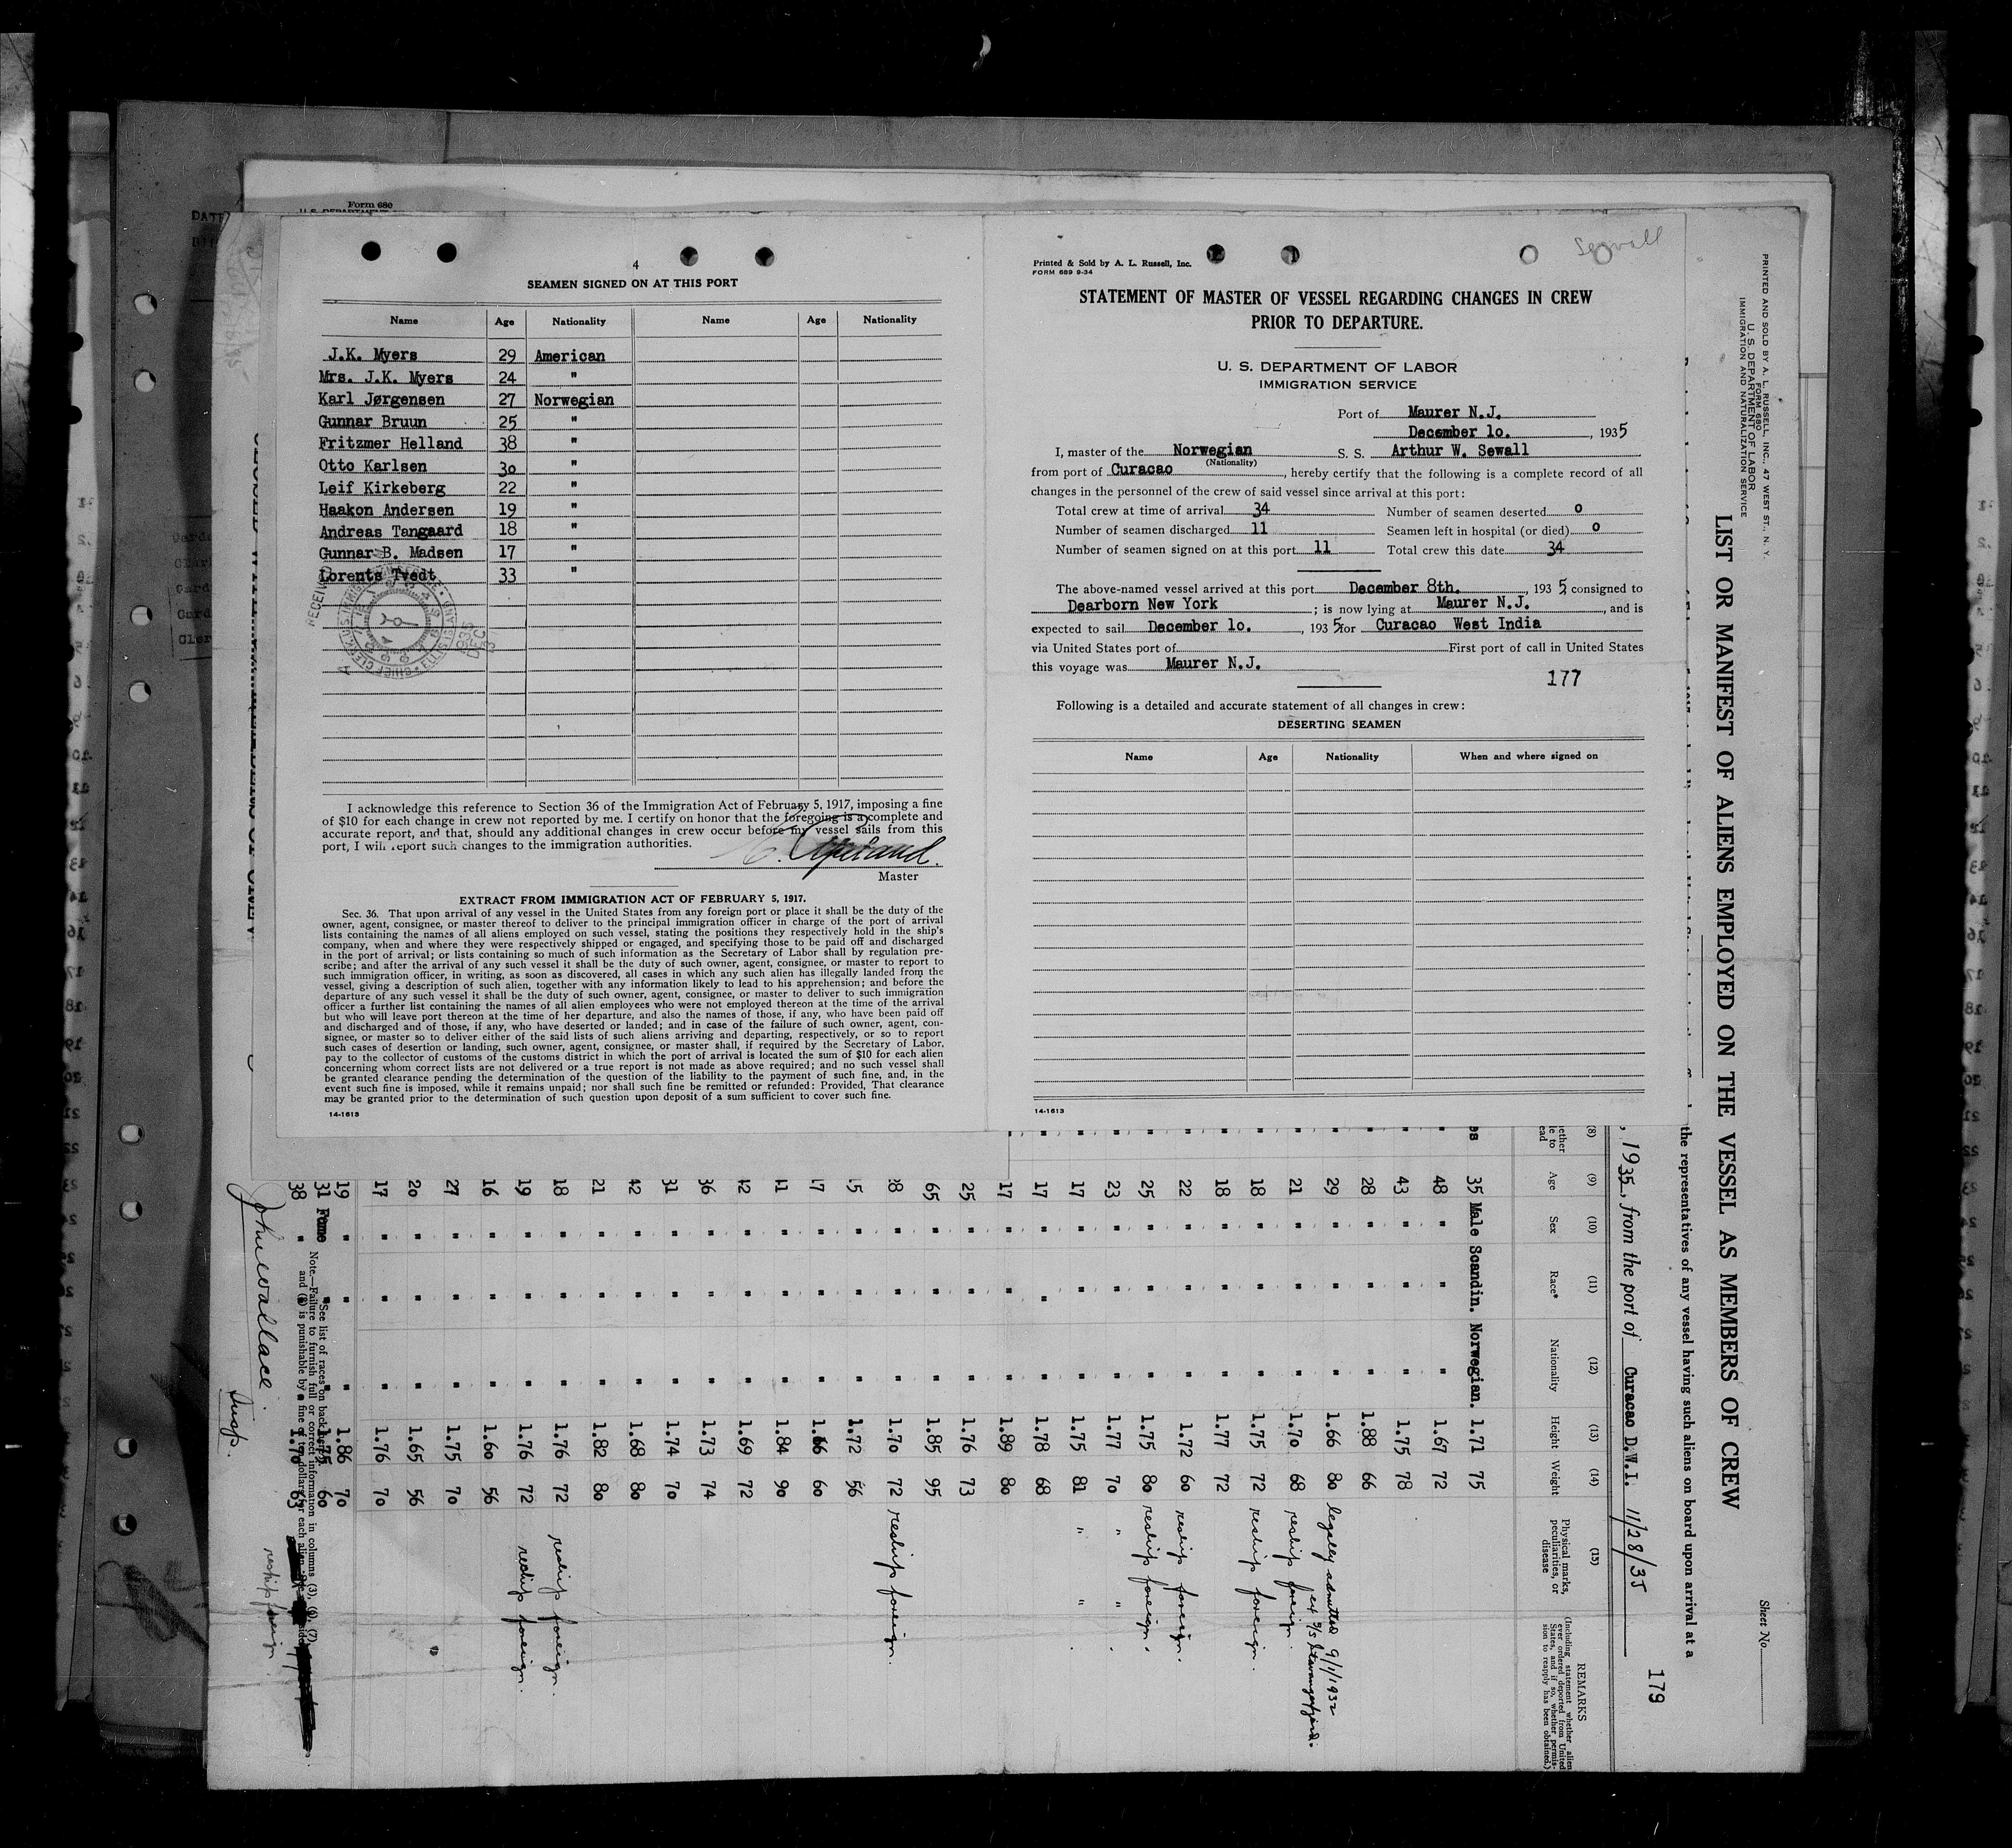 Form 680
4
SEAMEN SIGNED ON AT THIS PORT
Name Age Nationality Name Age Nationality
J.K. Myers 29 American
Mrs. J.K. Myers 24 "
Karl Jørgensen 27 Norwegian
Gunnar Bruun 25 "
Fritzmer Helland 38 "
Otto Karlsen 3o "
Leif Kirkeberg 22 "
Haakon Andersen 19 "
Andreas Tangaard 18 "
Gunnar B. Madsen 17 "
Lorents Tvedt 33 "
RECEIVED
I acknowledge this reference to Section 36 of the Immigration Act of February 5, 1917, imposing a fine
of $10 for each change in crew not reported by me. I certify on honor that the foregoing is a complete and
accurate report, and that, should any additional changes in crew occur before my vessel sails from this
port, I will report such changes to the immigration authorities.
Master
EXTRACT FROM IMMIGRATION ACT OF FEBRUARY 5, 1917.
Sec. 36. That upon arrival of any vessel in the United States from any foreign port or place it shall be the duty of the
owner, agent, consignee, or master thereof to deliver to the principal immigration officer in charge of the port of arrival
lists containing the names of all aliens employed on such vessel, stating the positions they respectively hold in the ship's
company, when and where they were respectively shipped or engaged, and specifying those to be paid off and discharged
in the port of arrival; or lists containing so much of such information as the Secretary of Labor shall by regulation pre-
scribe; and after the arrival of any such vessel it shall be the duty of such owner, agent, consignee, or master to report to
such immigration officer, in writing, as soon as discovered, all cases in which any such alien has illegally landed from the
vessel, giving a description of such alien, together with any information likely to lead to his apprehension; and before the
departure of any such vessel it shall be the duty of such owner, agent, consignee, or master to deliver to such immigration
officer a further list containing the names of all alien employees who were not employed thereon at the time of the arrival
but who will leave port thereon at the time of her departure, and also the names of those, if any, who have been paid off
and discharged and of those, if any, who have deserted or landed; and in case of the failure of such owner, agent, con-
signee, or master so to deliver either of the said lists of such aliens arriving and departing, respectively, or so to report
such cases of desertion or landing, such owner, agent, consignee, or master shall, if required by the Secretary of Labor,
pay to the collector of customs of the customs district in which the port of arrival is located the sum of $10 for each alien
concerning whom correct lists are not delivered or a true report is not made as above required; and no such vessel shall
be granted clearance pending the determination of the question of the liability to the payment of such fine, and, in the
event such fine is imposed, while it remains unpaid; nor shall such fine be remitted or refunded: Provided, That clearance
may be granted prior to the determination of such question upon deposit of a sum sufficient to cover such fine.
14-1613
Sewall
Printed & Sold by A. L. Russell, Inc.
FORM 689 9-34
STATEMENT OF MASTER OF VESSEL REGARDING CHANGES IN CREW
PRIOR TO DEPARTURE.
U. S. DEPARTMENT OF LABOR
IMMIGRATION SERVICE
Port of Maurer N.J.
December 1o. , 1935
I, master of the Norwegian S. S. Arthur W. Sewall
(Nationality)
from port of Curacao , hereby certify that the following is a complete record of all
changes in the personnel of the crew of said vessel since arrival at this port:
Total crew at time of arrival 34 Number of seamen deserted o
Number of seamen discharged 11 Seamen left in hospital (or died) o
Number of seamen signed on at this port 11 Total crew this date 34
The above-named vessel arrived at this port December 8th. , 1935, consigned to
Dearborn New York ; is now lying at Maurer N.J. , and is
expected to sail December 1o. , 1935 for Curacao West India
via United States port of First port of call in United States
this voyage was Maurer N.J.
177
Following is a detailed and accurate statement of all changes in crew:
DESERTING SEAMEN
Name Age Nationality When and where signed on
14-1613
PRINTED AND SOLD BY A. L. RUSSELL, INC., 47 WEST ST., N. Y.
FORM 680
U. S. DEPARTMENT OF LABOR
IMMIGRATION AND NATURALIZATION SERVICE
Sheet No.
LIST OR MANIFEST OF ALIENS EMPLOYED ON THE VESSEL AS MEMBERS OF CREW
the representatives of any vessel having such aliens on board upon arrival at a
179
, 1935, from the port of Curacao D.W.I. 11/28/35
(8) (9) (10) (11) (12) (13) (14) (15)
Age Sex Race* Nationality Height Weight Physical marks, peculiarities, or disease
REMARKS
(Including statement whether alien ever ordered deported from United States, and if so, whether permission to reapply has been obtained.)
35 Male Scandin. Norwegian. 1.71 75
48 " " " 1.67 72
43 " " " 1.75 78
28 " " " 1.88 66
29 " " " 1.66 8o legally admitted 9/1/1932
ex S/S Stavangerfjord.
21 " " " 1.7o 68 reship foreign.
18 " " " 1.75 72 reship foreign.
18 " " " 1.77 72
22 " " " 1.72 6o reship foreign.
25 " " " 1.75 8o reship foreign.
23 " " " 1.77 7o " "
17 " " " 1.75 81 " "
17 " " " 1.78 68
17 " " " 1.89 8o
25 " " " 1.76 73
65 " " " 1.85 95
" " " 1.7o 72 reship foreign.
" " " 1.72 56
" " " 6o
" " " 1.84 9o
" " " 1.69 72
36 " " " 1.73 74
31 " " " 1.74 7o
42 " " " 1.68 8o
21 " " " 1.82 8o
18 " " " 1.76 72 reship foreign.
19 " " " 1.76 72 reship foreign.
16 " " " 1.6o 56
27 " " " 1.75 7o
20 " " " 1.65 56
17 " " " 1.76 7o
19 " " " 1.86 7o
31 " " 1.75 6o
38 " 1.7o 63 reship foreign.
*See list of races on back
Note.—Failure to furnish full or correct information in columns (3), (6), (7),
and is punishable by a fine of ten dollars for each alien.
John Wallace.
Insp.